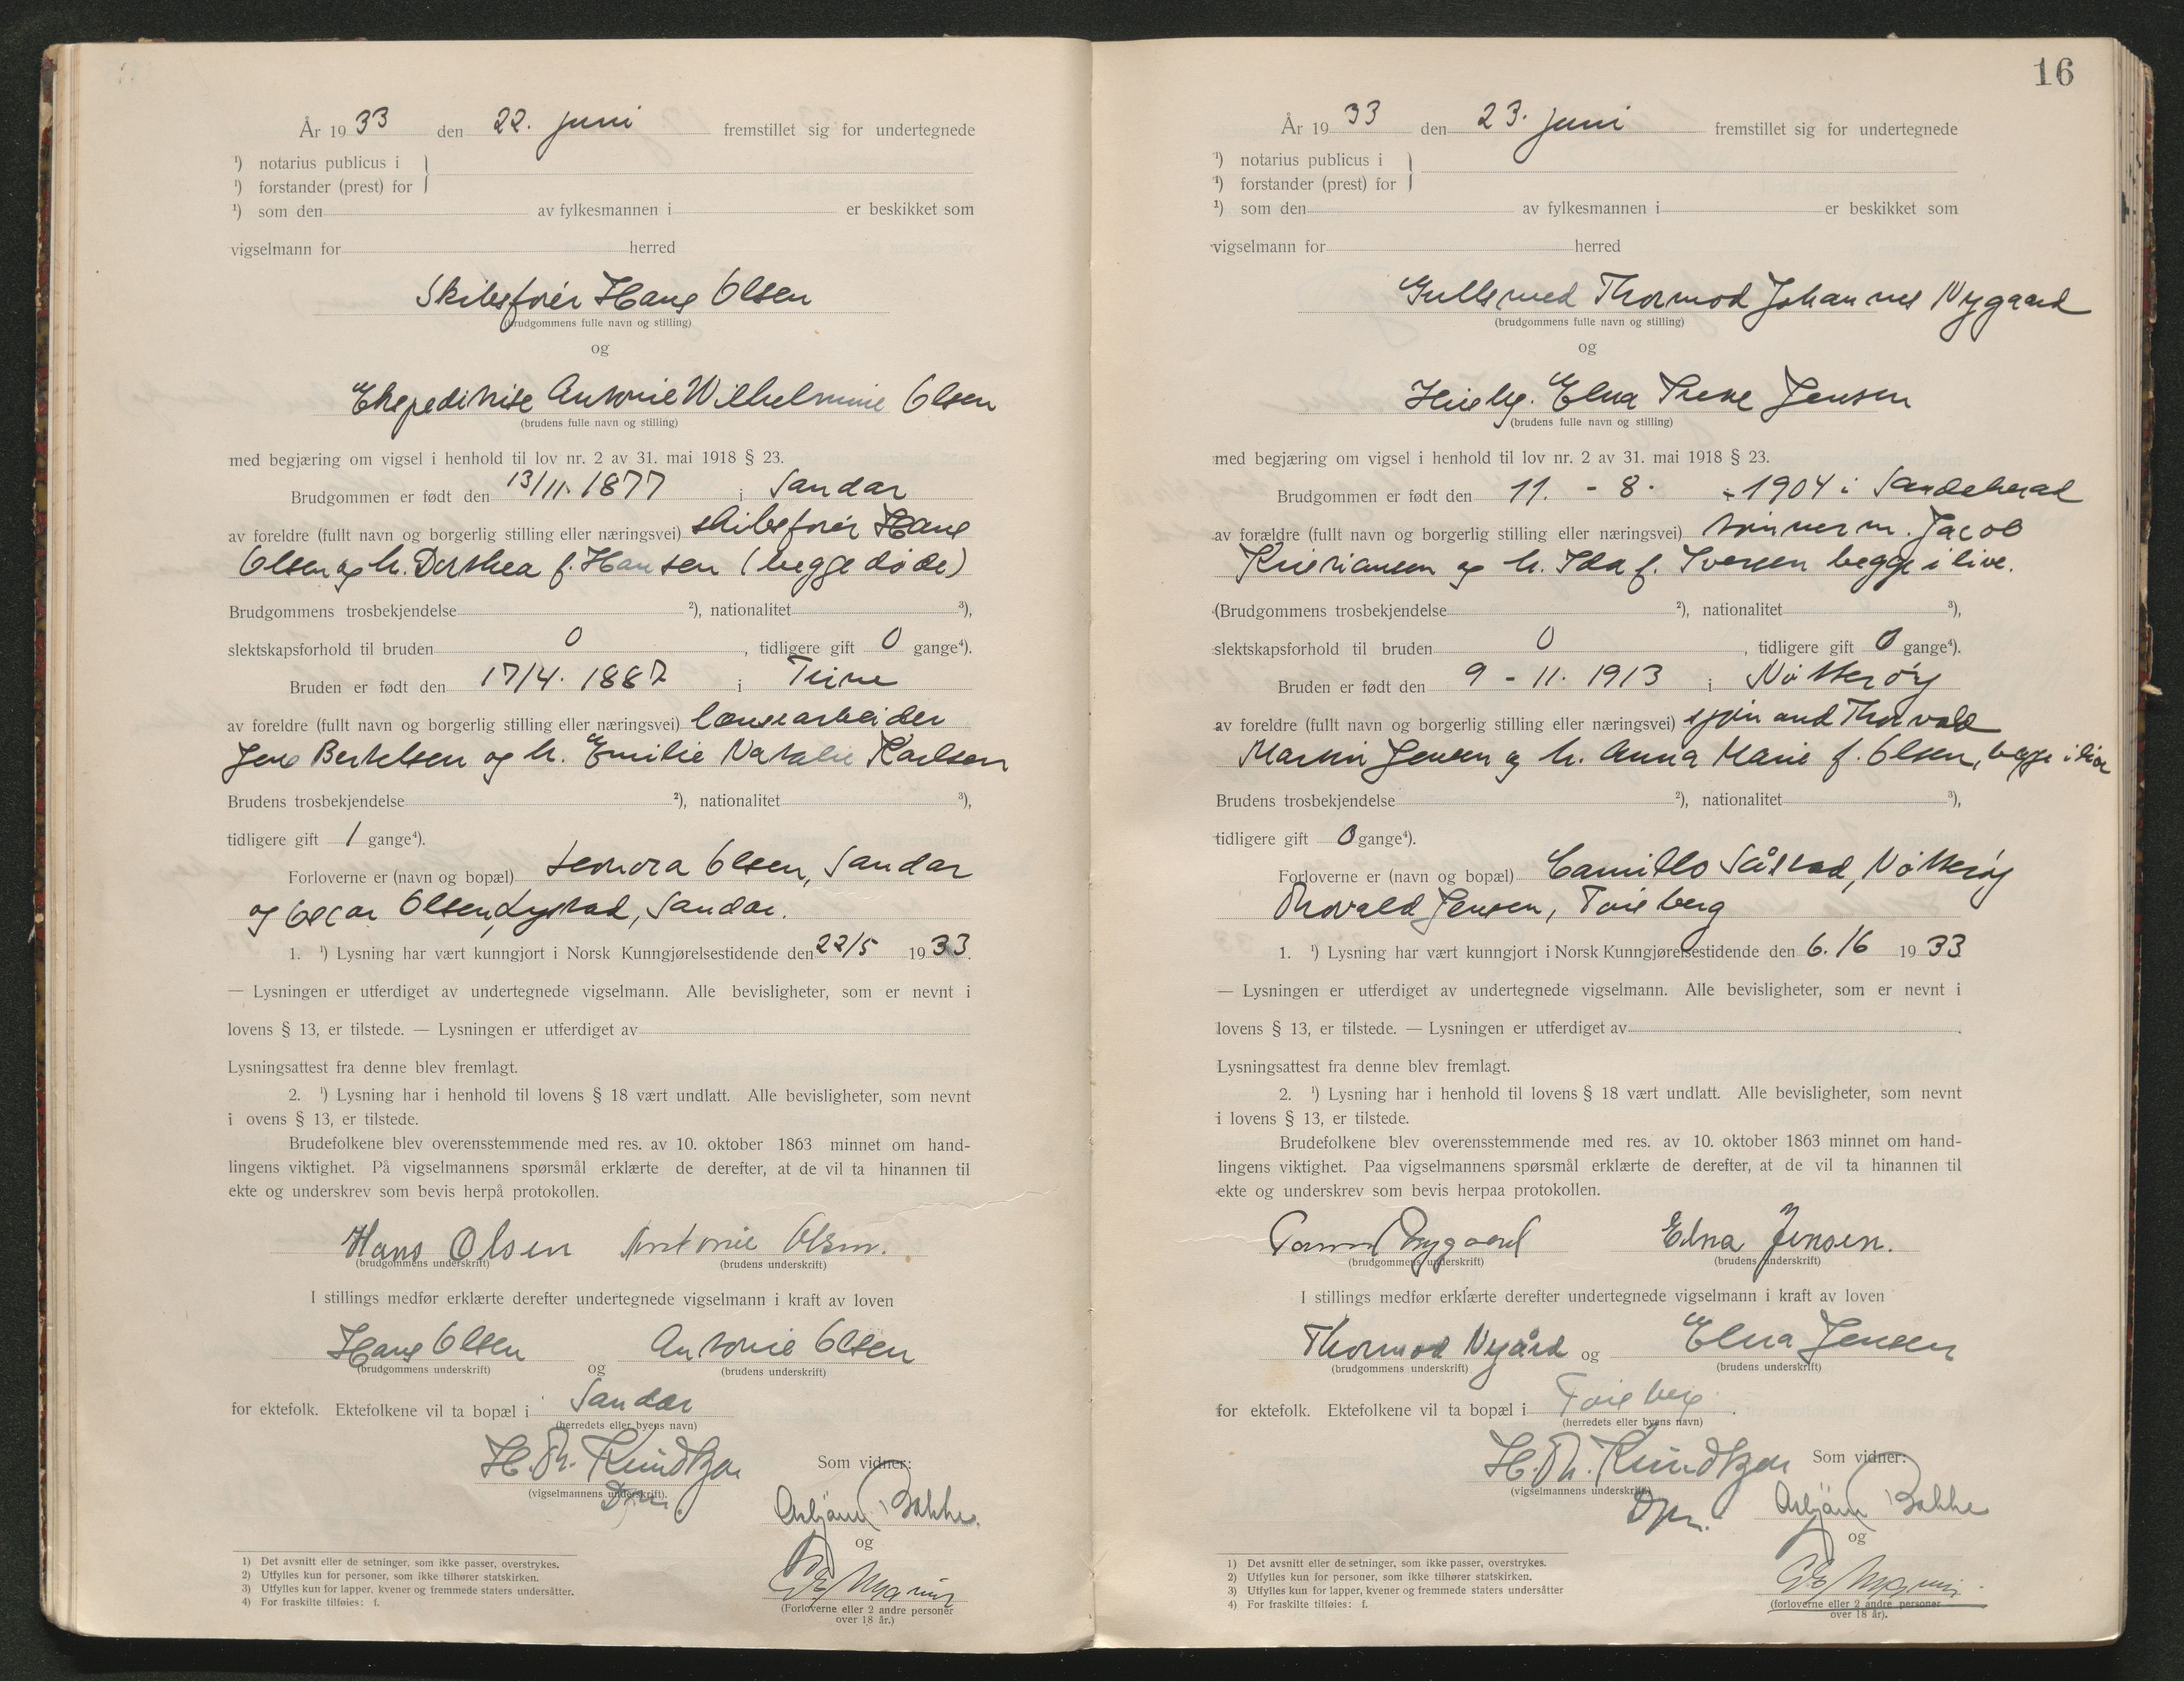 År 1933 den 22. juni fremstillet sig for undertegnede
¹) notarius publicus i
¹) forstander (prest) for
¹) som den av fylkesmannen i er beskikket som
vigselmann for herred
Skibsfører Hans Olsen
(brudgommens fulle navn og stilling)
og
Ekspeditrise Antonie Wilhelmine Olsen
(brudens fulle navn og stilling)
med begjæring om vigsel i henhold til lov nr. 2 av 31. mai 1918 § 23.
Brudgommen er født den 13/11. 1877 i Sandar
av foreldre (fullt navn og borgerlig stilling eller næringsvei) skibsfører Hans
Olsen og h. Dorthea f. Hansen (begge døde)
Brudgommens trosbekjendelse ²), nationalitet ³),
slektskapsforhold til bruden 0 , tidligere gift 0 gange⁴).
Bruden er født den 17/4. 1887 i
av foreldre (fullt navn og borgerlig stilling eller næringsvei) lensearbeider
Jens Bertelsen og h. Emilie Natalie Karlsen
Brudens trosbekjendelse ²), nationalitet ³),
tidligere gift 1 gange⁴).
Forloverne er (navn og bopæl) Leonora Olsen, Sandar
og Oscar Olsen, Lystad, Sandar.
1. ¹) Lysning har vært kunngjort i Norsk Kunngjørelsestidende den 22/5 1933.
— Lysningen er utferdiget av undertegnede vigselmann. Alle bevisligheter, som er nevnt i
lovens § 13, er tilstede. — Lysningen er utferdiget av
Lysningsattest fra denne blev fremlagt.
2. ¹) Lysning har i henhold til lovens § 18 vært undlatt. Alle bevisligheter, som nevnt
i ovens § 13, er tilstede.
Brudefolkene blev overensstemmende med res. av 10. oktober 1863 minnet om hand-
lingens viktighet. På vigselmannens spørsmål erklærte de derefter, at de vil ta hinannen til
ekte og underskrev som bevis herpå protokollen.
Hans Olsen Antonie Olsen.
(brudgommens underskrift) (brudens underskrift)
I stillings medfør erklærte derefter undertegnede vigselmann i kraft av loven
Hans Olsen og Antonie Olsen
(brudgommens underskrift) (brudens underskrift)
for ektefolk. Ektefolkene vil ta bopæl i Sandar
(herredets eller byens navn)
H. Th. Kundtzon Som vidner:
(vigselmannens underskrift).
Asbjørn Bakke.
og
(Forloverne eller 2 andre personer
over 18 år.)
1) Det avsnitt eller de setninger, som ikke passer, overstrykes.
2) Utfylles kun for personer, som ikke tilhører statskirken.
3) Utfylles kun for lapper, kvener og fremmede staters undersåtter.
4) For fraskilte tilføies: f.
16
År 1933 den 23. juni fremstillet sig for undertegnede
¹) notarius publicus i
¹) forstander (prest) for
¹) som den av fylkesmannen i er beskikket som
vigselmann for herred
Gullsmed Thormod Johannes Nygaard
(brudgommens fulle navn og stilling)
og
Elna Jensen
(brudens fulle navn og stilling)
med begjæring om vigsel i henhold til lov nr. 2 av 31. mai 1918 § 23.
Brudgommen er født den 11. - 8. - 1904 i Sandeherad
av forældre (fullt navn og borgerlig stilling eller næringsvei) tømmerm. Jacob
Kristiansen og h. Ida f. Iversen begge i live.
(Brudgommens trosbekjendelse ²), nationalitet ³),
slektskapsforhold til bruden 0 , tidligere gift 0 gange⁴).
Bruden er født den 9 - 11. 1913 i Nøtterøy
av foreldre (fullt navn og borgerlig stilling eller næringsvei) sjømand Thorvald
Martin Jensen og h. Anna Marie f. Olsen, begge i live
Brudens trosbekjendelse ²), nationalitet ³),
tidligere gift 0 gange⁴).
Forloverne er (navn og bopæl) Camillo Såstad, Nøtterøy
Thorvald Jensen, Toieberg
1. ¹) Lysning har vært kunngjort i Norsk Kunngjørelsestidende den 6./6 1933
— Lysningen er utferdiget av undertegnede vigselmann. Alle bevisligheter, som er nevnt i
lovens § 13, er tilstede. — Lysningen er utferdiget av
Lysningsattest fra denne blev fremlagt.
2. ¹) Lysning har i henhold til lovens § 18 vært undlatt. Alle bevisligheter, som nevnt
i lovens § 13, er tilstede.
Brudefolkene blev overensstemmende med res. av 10. oktober 1863 minnet om hand-
lingens viktighet. Paa vigselmannens spørsmål erklærte de derefter, at de vil ta hinannen til
ekte og underskrev som bevis herpaa protokollen.
Nygaard Elna Jensen.
(brudgommens underskrift) (brudens underskrift)
I stillings medfør erklærte derefter undertegnede vigselmann i kraft av loven
Thormod Nygård og Elna Jensen
(brudgommens underskrift) (brudens underskrift)
for ektefolk. Ektefolkene vil ta bopæl i Toieberg.
(herredets eller byens navn)
H. Th. Kundtzon Som vidner:
(vigselmannens underskrift)
Asbjørn Bakke
og
(forloverne eller 2 andre personer
over 18 år).
1) Det avsnitt eller de setninger, som ikke passer, overstrykes.
2) Utfylles kun for personer, som ikke tilhører statskirken.
3) Utfylles kun for lapper, kvener og fremmede staters undersåtter
4) For fraskilte tilføies: f.